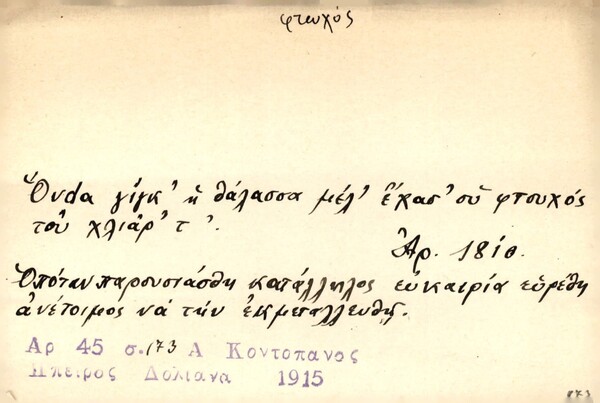 φτωχός
Ὅνdα γίγκ' ἡ θάλασσα μέλ' ἔχασ' οὑ φτουχός
τοὺ χλιάρ' τ'.
Ἀρ. 1810.
Ὁπόταν παρουσιάσθη κατάλληλος εὐκαιρία εὑρέθη
ἀνέτοιμος νά τήν ἐκμεταλλευθῇ.
Αρ 45 σ. 173 Α Κοντοπανος
Ηπειρος Δολιανα 1915
873